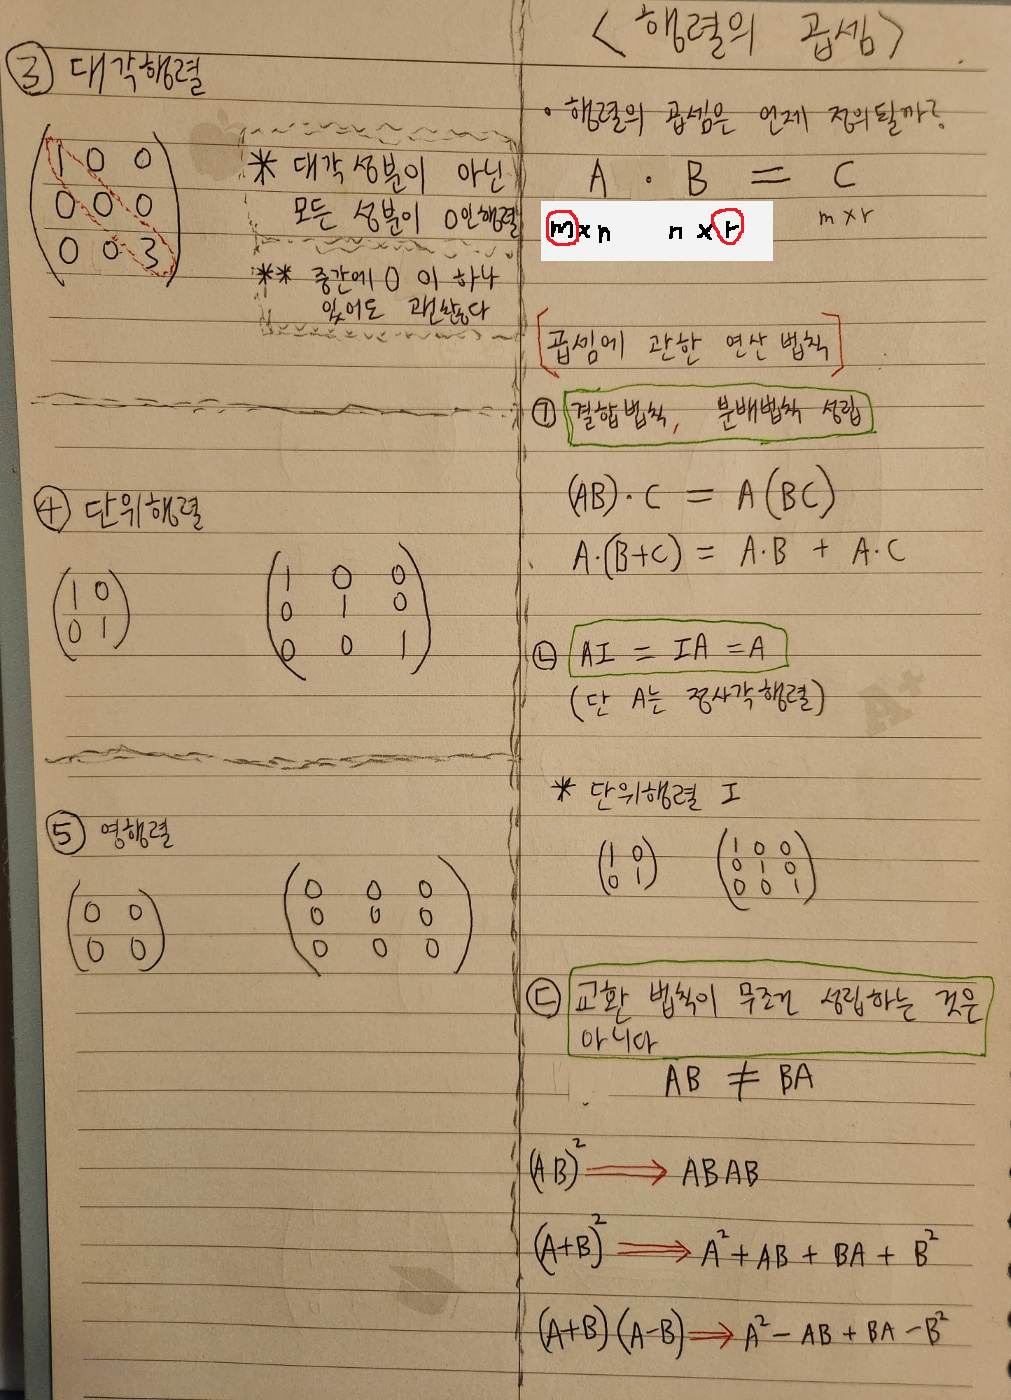 ③ 대각행렬
1 0 0
0 0 0
0 0 3
* 대각 성분이 아닌
모든 성분이 0인행렬
** 중간에 0 이 하나
있어도 괜찮다
④ 단위행렬
1 0
0 1
1 0 0
0 1 0
0 0 1
⑤ 영행렬
0 0
0 0
0 0 0
0 0 0
0 0 0
<행렬의 곱셈>
• 행렬의 곱셈은 언제 정의될까?
A · B = C
m×n n×r m×r
[곱셈에 관한 연산 법칙]
㉠ 결합법칙, 분배법칙 성립
(AB)·C = A(BC)
A·(B+C) = A·B + A·C
㉡ AI = IA = A
(단 A는 정사각행렬)
* 단위행렬 I
1 0
0 1
1 0 0
0 1 0
0 0 1
㉢ 교환 법칙이 무조건 성립하는 것은
아니다
AB ≠ BA
(AB)² ⟹ ABAB
(A+B)² ⟹ A² + AB + BA + B²
(A+B)(A-B) ⟹ A² - AB + BA - B²
A+